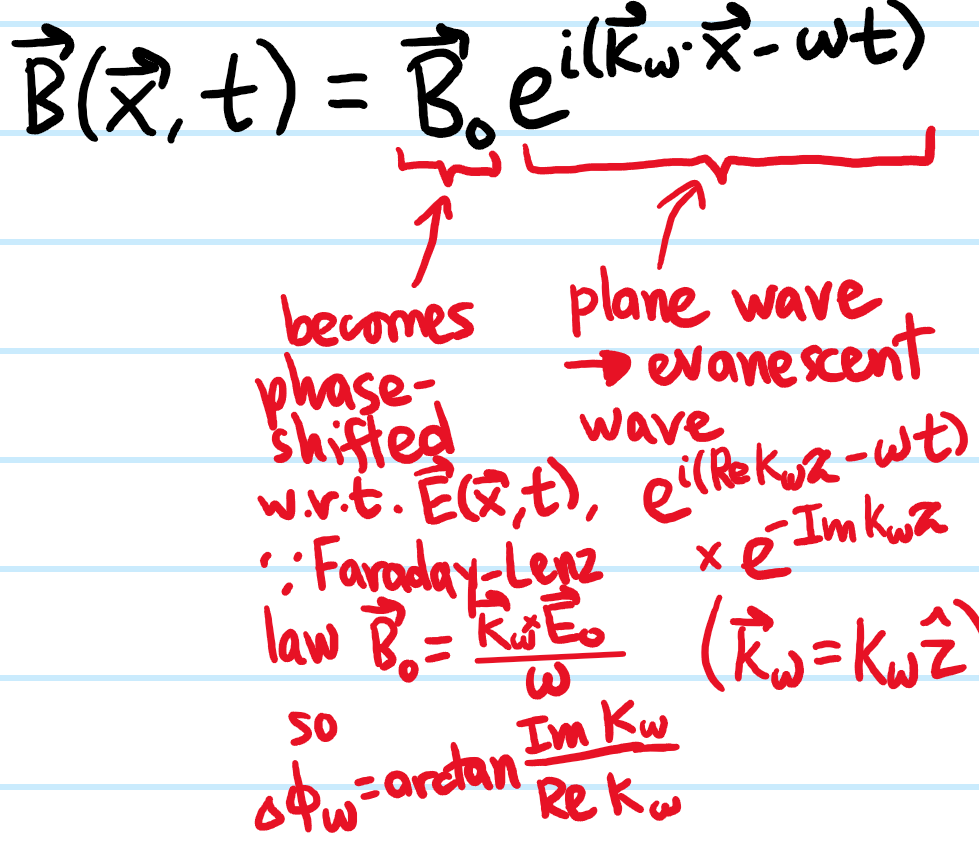 B⃗(x⃗, t) = B⃗₀ e^{i(k⃗_ω·x⃗ - ωt)}
becomes
phase-
shifted
w.r.t. E⃗(x⃗,t),
∵ Faraday-Lenz
law B⃗₀ = k⃗_ω × E⃗₀ / ω
so
Δϕ_ω = arctan Im k_ω / Re k_ω
plane wave
→ evanescent
wave
e^{i(Re k_ω z - ωt)}
× e^{-Im k_ω z}
(k⃗_ω = k_ω ẑ)